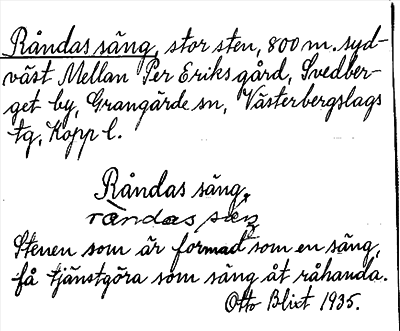 Råndas säng, stor sten, 800 m. syd-
väst Mellan Per Eriks gård, Svedber-
get by, Grangärde sn, Västerbergslags
tg, Kopp l.
Råndas säng.
råndas säŋ
Stenen som är formad som en säng,
få tjänstgöra som säng åt råhanda.
Otto Blixt 1935.